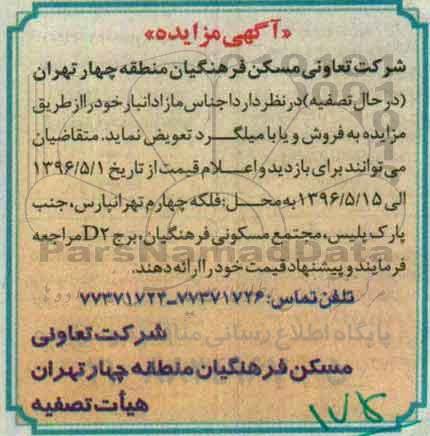 «آگهی مزایده»
شرکت تعاونی مسکن فرهنگیان منطقه چهار تهران
(در حال تصفیه) در نظر دارد اجناس مازاد انبار خود را از طریق
مزایده به فروش و یا با میلگرد تعویض نماید. متقاضیان
می‌توانند برای بازدید و اعلام قیمت از تاریخ ۱۳۹۶/۵/۱
الی ۱۳۹۶/۵/۱۵ به محل: فلکه چهارم تهرانپارس، جنب
پارک پلیس، مجتمع مسکونی فرهنگیان، برج D۲ مراجعه
فرمایند و پیشنهاد قیمت خود را ارائه دهند.
تلفن تماس: ۷۷۳۷۱۷۲۶-۷۷۳۷۱۷۲۳
شرکت تعاونی
مسکن فرهنگیان منطقه چهار تهران
هیأت تصفیه
ParsNamadData
پایگاه اطلاع رسانی